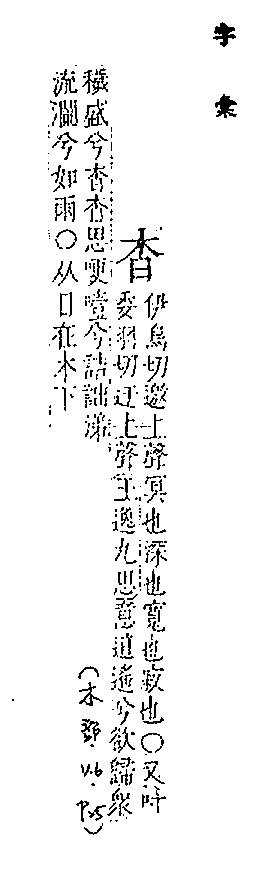 字彙
杳
伊鳥切邀上聲冥也深也寬也寂也○又叶
委羽切迂上聲王逸九思意逍遙兮欲歸衆
穢盛兮杳杳思哽噎兮詰詘涕
流瀾兮如雨○从日在木下
(木部.V.6.P25)